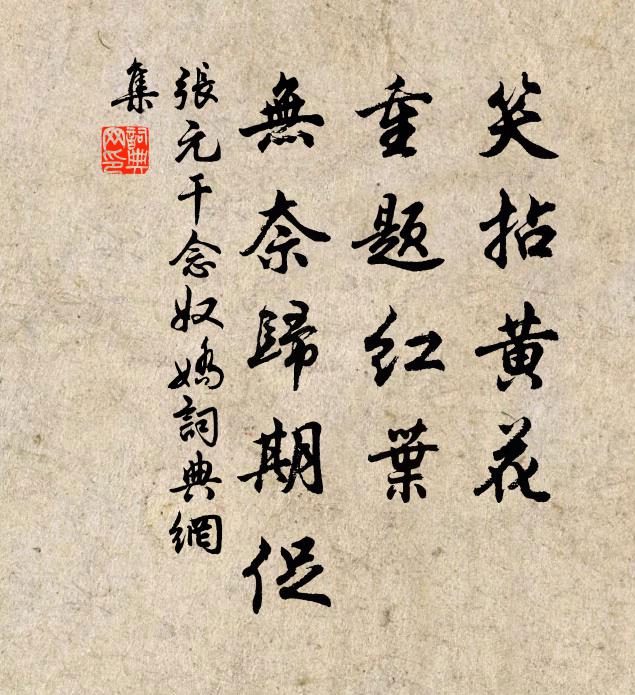 笑拈黄花
重题红葉
無奈歸期促
張元干念奴嬌詞典網
集
詞典
网印